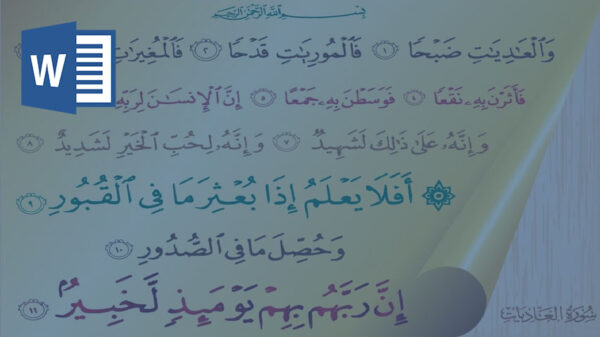 بِسْمِ اللَّهِ الرَّحْمَٰنِ الرَّحِيمِ
وَالْعَادِيَاتِ ضَبْحًا ١ فَالْمُورِيَاتِ قَدْحًا ٢ فَالْمُغِيرَاتِ
W
فَأَثَرْنَ بِهِ نَقْعًا ٤ فَوَسَطْنَ بِهِ جَمْعًا ٥ إِنَّ الْإِنسَانَ لِرَبِّهِ
وَإِنَّهُ عَلَىٰ ذَٰلِكَ لَشَهِيدٌ ٧ وَإِنَّهُ لِحُبِّ الْخَيْرِ لَشَدِيدٌ ٨
۞ أَفَلَا يَعْلَمُ إِذَا بُعْثِرَ مَا فِي الْقُبُورِ ٩
وَحُصِّلَ مَا فِي الصُّدُورِ ١٠
إِنَّ رَبَّهُم بِهِمْ يَوْمَئِذٍ لَّخَبِيرٌ ١١
سُورَةُ الْعَادِيَاتِ